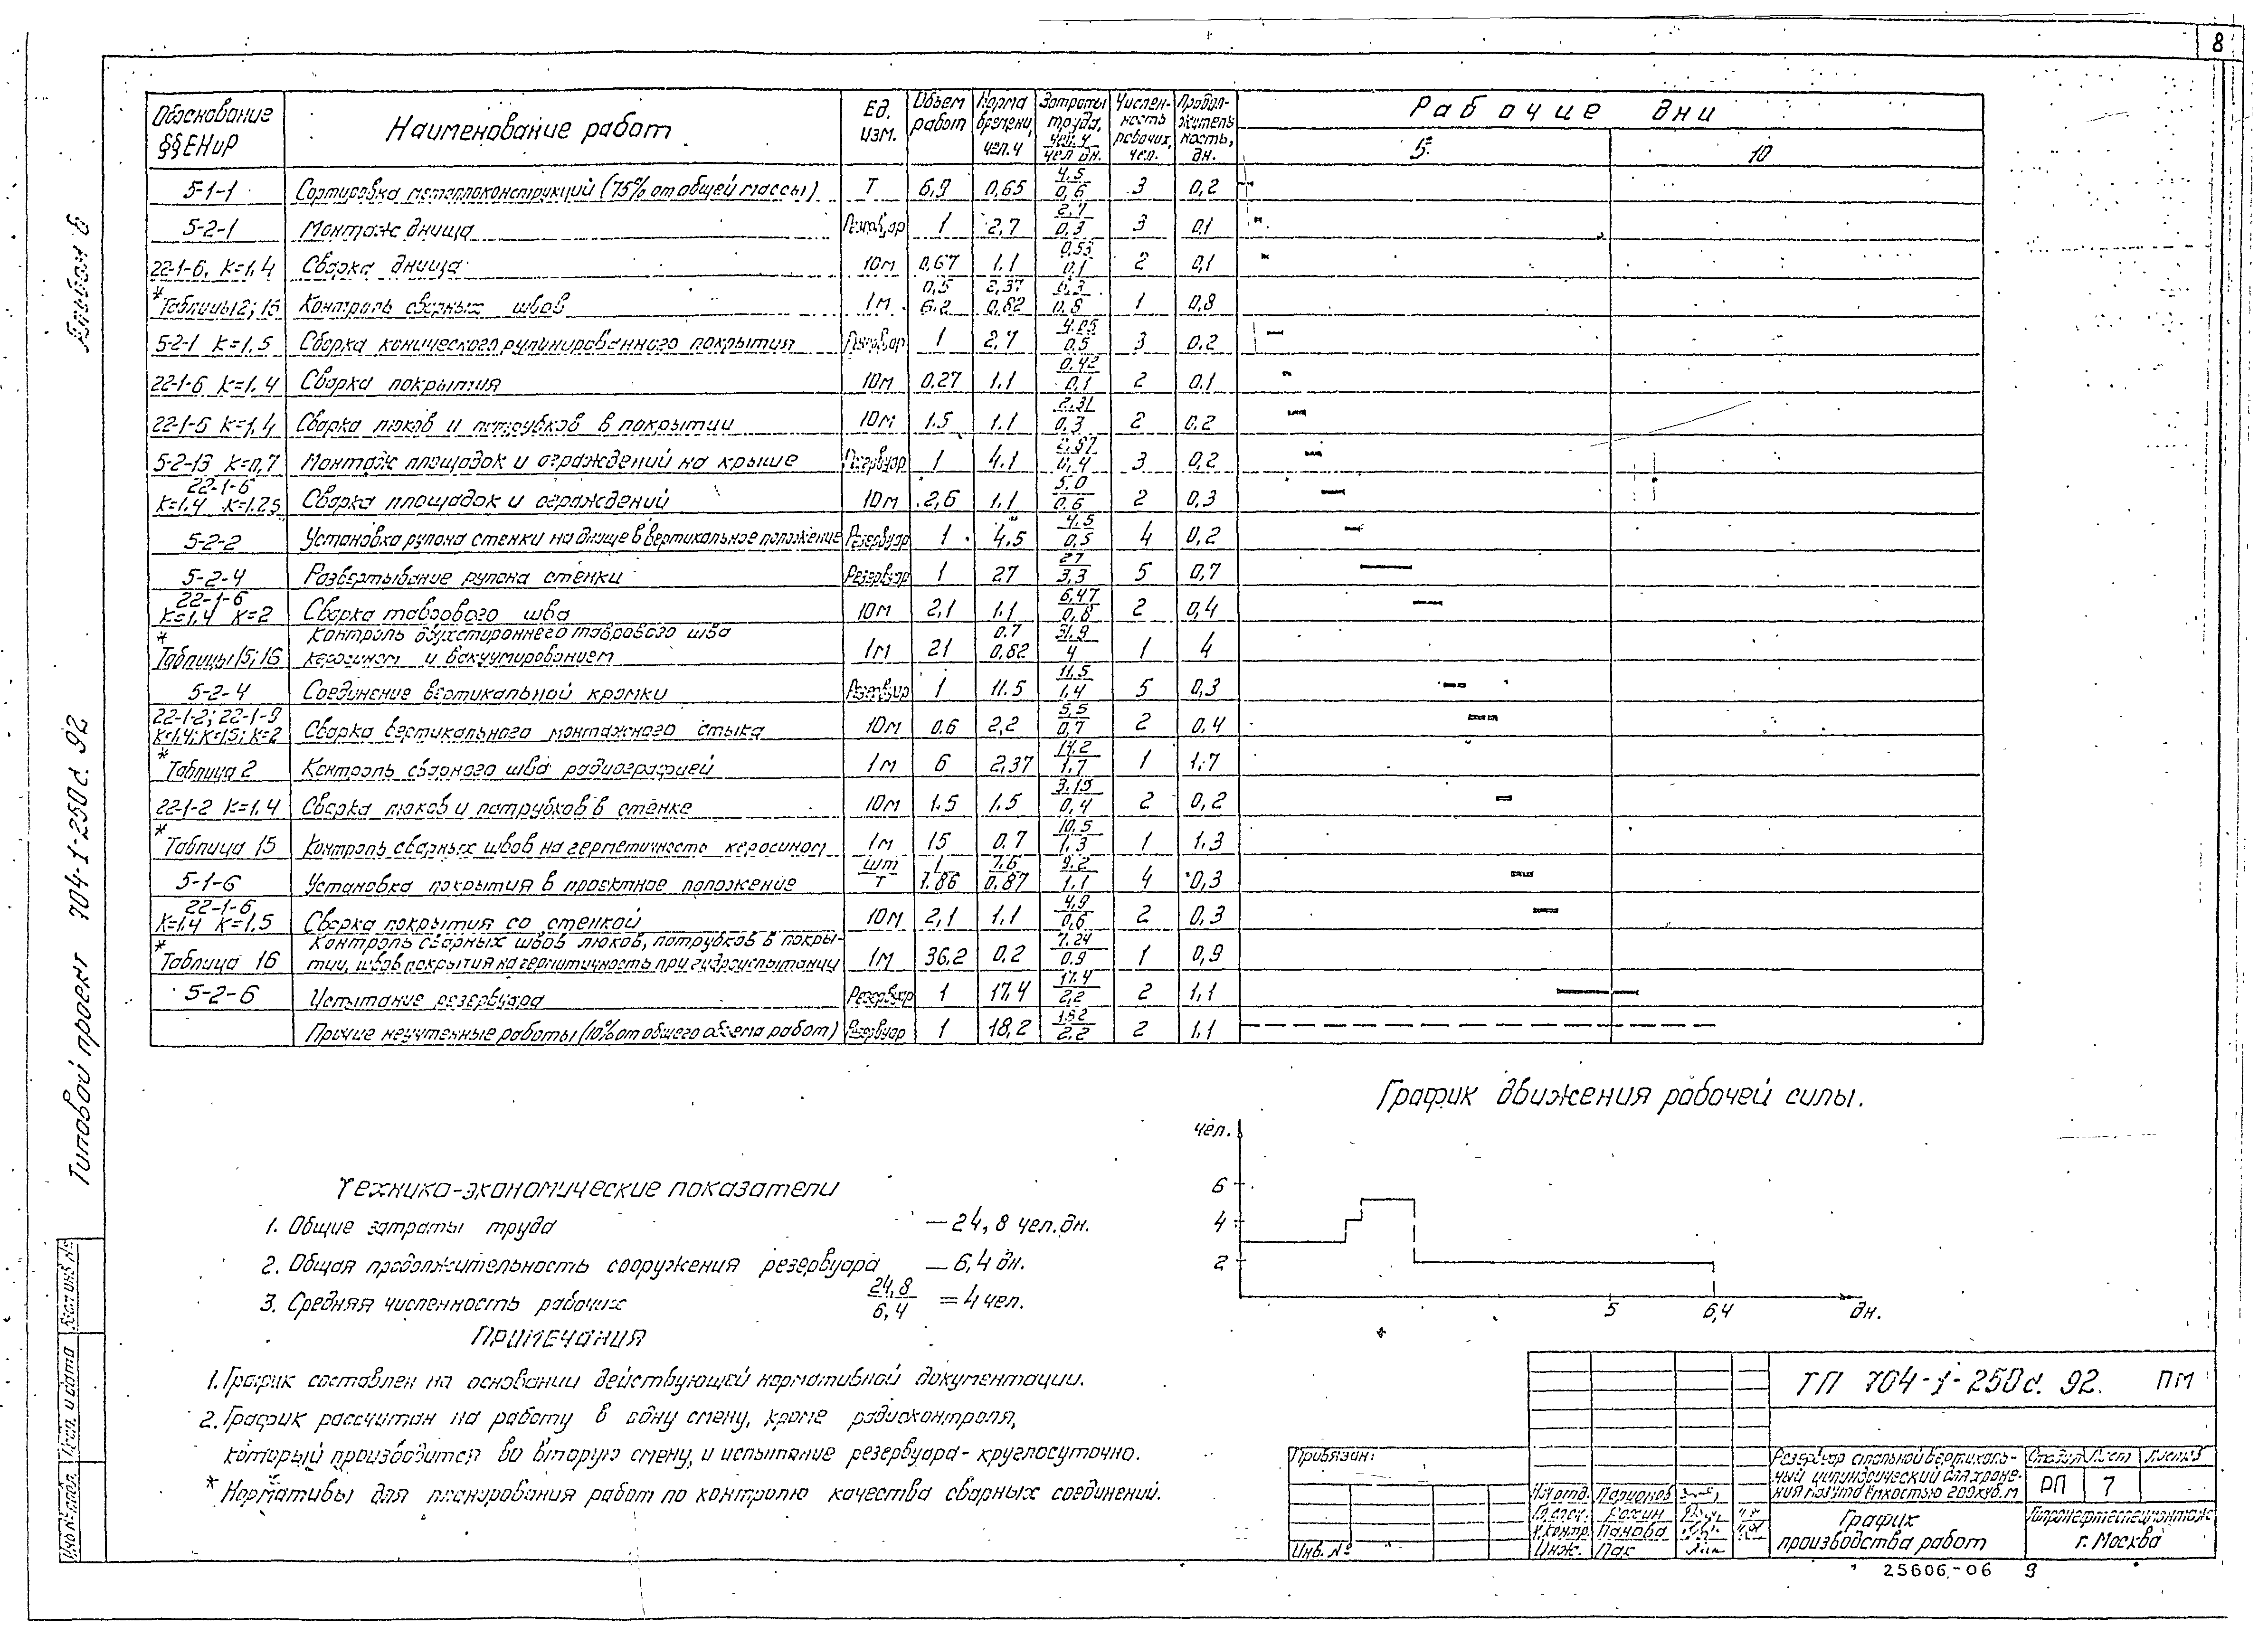 8
Альбом 6
Типовой проект 704-1-250с. 92
Обоснование §§ЕНиР
Наименование работ
Ед. изм.
Объем работ
Норма времени, чел.ч
Затраты труда, чел.ч чел дн.
Числен- ность рабочих, чел.
Продол- житель ность, дн.
Рабочие дни
5
10
5-1-1 Сортировка металлоконструкций (75% от общей массы) Т 6,9 0,65 4,5 0,6 3 0,2
5-2-1 Монтаж днища Резервуар 1 2,7 2,7 0,3 3 0,1
22-1-6, К=1,4 Сварка днища 10м 0,67 1.1 0,1 2 0,1
*Таблицы 2; 16 Контроль сварных швов 1м 0,5 6.2 2,37 0,62 6,3 0,8 1 0,8
5-2-1 К=1,5 Сборка конического рулонированного покрытия Резервуар 1 2,7 4.05 0.5 3 0.2
22-1-6 К=1,4 Сварка покрытия 10м 0,27 1.1 0.42 0,1 2 0.1
22-1-6 К=1,4 Сварка люков и патрубков в покрытии 10м 1.5 1.1 2.31 0,3 2 0,2
5-2-13 К=0,7 Монтаж площадок и ограждений на крыше Резервуар 1 4.1 2,87 0,4 3 0,2
22-1-6 К=1,4 К=1.25 Сварка площадок и ограждений 10м 2,6 1.1 5,0 0.6 2 0,3
5-2-2 Установка рулона стенки на днище в вертикальное положение Резервуар 1 4.5 4.5 0,5 4 0,2
5-2-4 Развертывание рулона стенки Резервуар 1 27 27 3,3 5 0,7
22-1-6 К=1,4 К=2 Сварка таврового шва 10м 2,1 1.1 6,47 0,8 2 0,4
* Таблицы 15; 16 Контроль двухстороннего таврового шва керосином и вакуумированием 1м 21 0.7 0,62 31,9 4 1 4
5-2-4 Соединение вертикальной кромки Резервуар 1 11.5 11,5 1,4 5 0,3
22-1-2; 22-1-9 К=1,4; К=1,5; К=2 Сварка вертикального монтажного стыка 10м 0.6 2,2 5,5 0,7 2 0.4
* Таблица 2 Контроль сварного шва радиографией 1м 6 2,37 14.2 1.7 1 1,7
22-1-2 К=1,4 Сварка люков и патрубков в стенке 10м 1.5 1.5 3,15 0,4 2 0,2
* Таблица 15 Контроль сварных швов на герметичность керосином 1м 15 0.7 10,5 1,3 1 1.3
5-1-6 Установка покрытия в проектное положение шт Т 1 1.86 7.6 0.87 9.2 1.1 4 0,3
22-1-6 К=1,4 К=1,5 Сварка покрытия со стенкой 10м 2,1 1.1 4,9 0,6 2 0.3
* Таблица 16 Контроль сварных швов люков, патрубков в покры- тии, швов покрытия на герметичность при гидроиспытании 1м 36.2 0.2 7.24 0.9 1 0,9
5-2-6 Испытание резервуара Резервуар 1 17,4 17.4 2,2 2 1,1
Прочие неучтенные работы (10% от общего объема работ) Резервуар 1 18,2 18.2 2.2 2 1.1
График движения рабочей силы.
чел.
6
4
2
5
6,4
дн.
Технико-экономические показатели
1. Общие затраты труда — 24,8 чел.дн.
2. Общая продолжительность сооружения резервуара — 6,4 дн.
3. Средняя численность рабочих 24,8 6,4 = 4 чел.
Примечания
1. График составлен на основании действующей нормативной документации.
2. График рассчитан на работу в одну смену, кроме радиоконтроля,
который производится во вторую смену, и испытание резервуара - круглосуточно.
* Нормативы для планирования работ по контролю качества сварных соединений.
Взам инв №
Подп. и дата
Инв № подл.
Привязан:
Инв. №
ТП 704-1-250с. 92. ПМ
Нач отд. Ларионов
Гл. спец.
Н.контр. Панова
Инж. Пак
Резервуар стальной вертикаль-
ный цилиндрический для хране-
ния мазута емкостью 200куб.м
Стадия Лист Листов
РП 7
График
производства работ
Гипронефтеспецмонтаж
г. Москва
25606-06 9